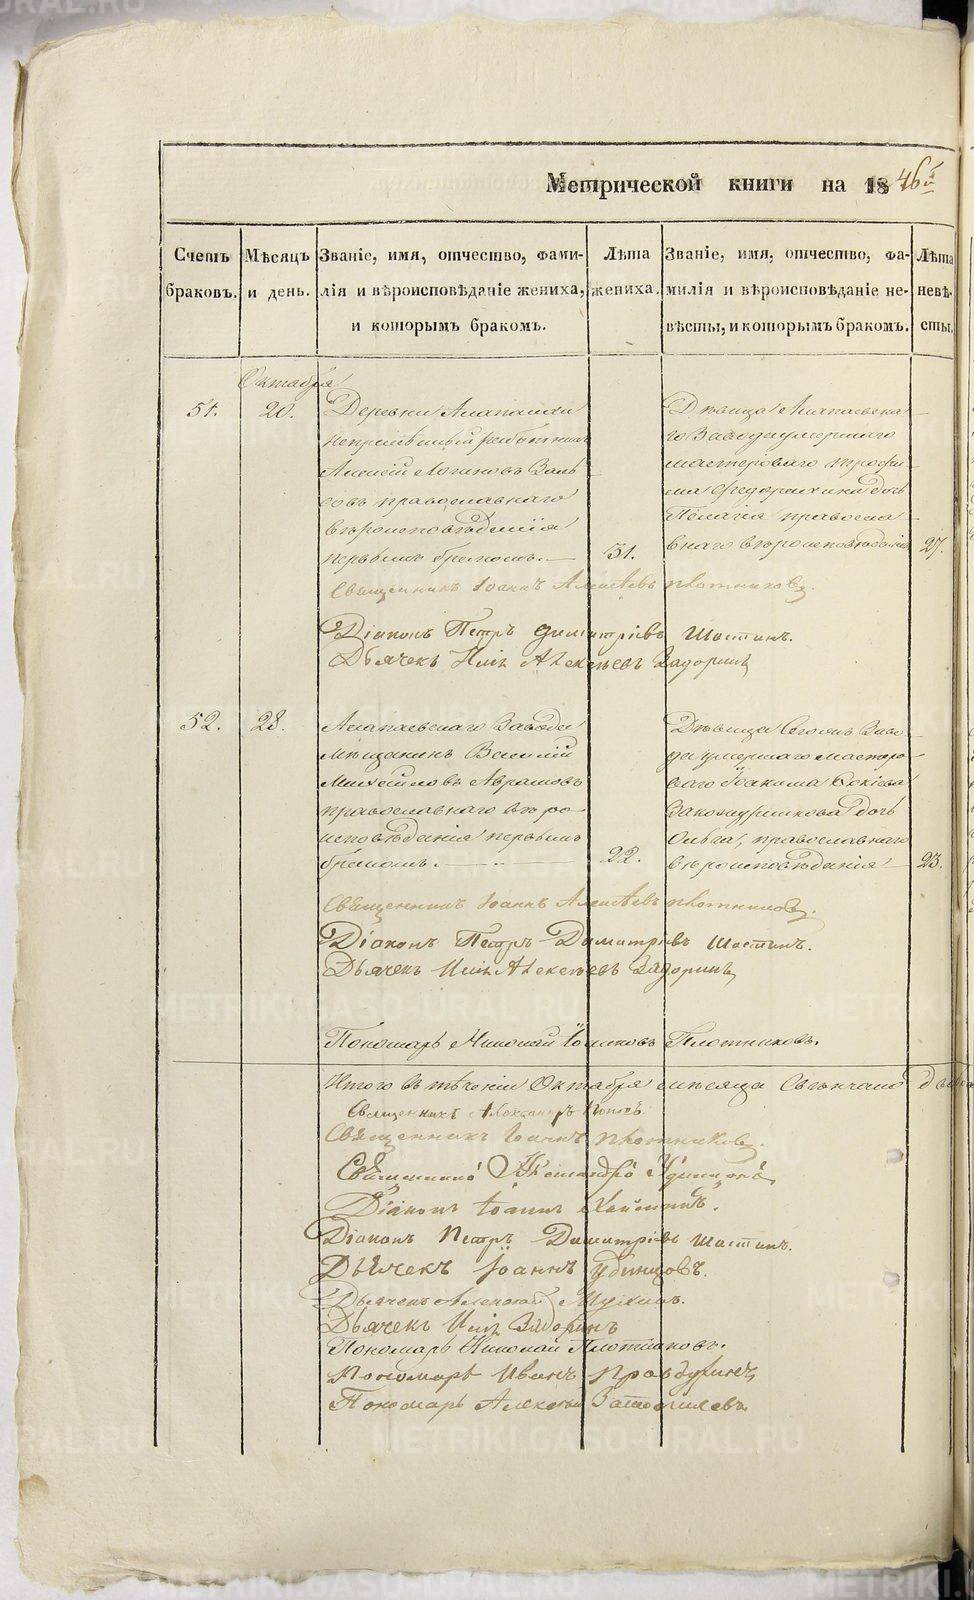 Метрической книги на 1846й
Счетъ браковъ.
Мѣсяцъ и день.
Званіе, имя, отчество, фами-
лія и вѣроисповѣданіе жениха,
и которымъ бракомъ.
Лѣта жениха.
Званіе, имя, отчество, фа-
милія и вѣроисповѣданіе не-
вѣсты, и которымъ бракомъ.
Лѣта невѣ-
сты.
Октября
51.
20.
Деревни Алапаихи
непремѣнный работникъ
Алексій Логиновъ
православнаго
вѣроисповѣданія
первымъ бракомъ.
31.
Дѣвица Алапаевска
го Завода умершаго
мастероваго Трофи
ма дочь
Пелагія правосла
внаго вѣроисповѣданія
27.
Священникъ Іоаннъ Алексѣевъ Плотниковъ.
Діаконъ Петръ Димитріевъ Шастинъ.
Дьячекъ Илія Алексѣевъ Задоринъ
52.
23.
Алапаевскаго Завода
мѣщанинъ Василій
Михайловъ Аврамовъ
православнаго вѣро-
исповѣданія первымъ
бракомъ.
22.
Дѣвица Заво
да умершаго мастеро
ваго Іоакима
дочь
Ольга, православнаго
вѣроисповѣданія
23.
Священникъ Іоаннъ Алексѣевъ Плотниковъ.
Діаконъ Петръ Димитріевъ Шастинъ.
Дьячекъ Илія Алексѣевъ Задоринъ
Пономарь Николай Плотниковъ.
Итого въ теченіи Октября мѣсяца Свѣнчано
Священникъ Александръ Поповъ.
Священникъ Іоаннъ Плотниковъ.
Священникъ Удинцовъ
Діаконъ Іоаннъ
Діаконъ Петръ Димитріевъ Шастинъ.
Дьячекъ Іоаннъ Удинцовъ.
Дьячекъ Алексѣй
Дьячекъ Илія Задоринъ
Пономарь Николай Плотниковъ.
Пономарь Иванъ Правдухинъ
Пономарь Алексѣй
METRIKI.GASO-URAL.RU